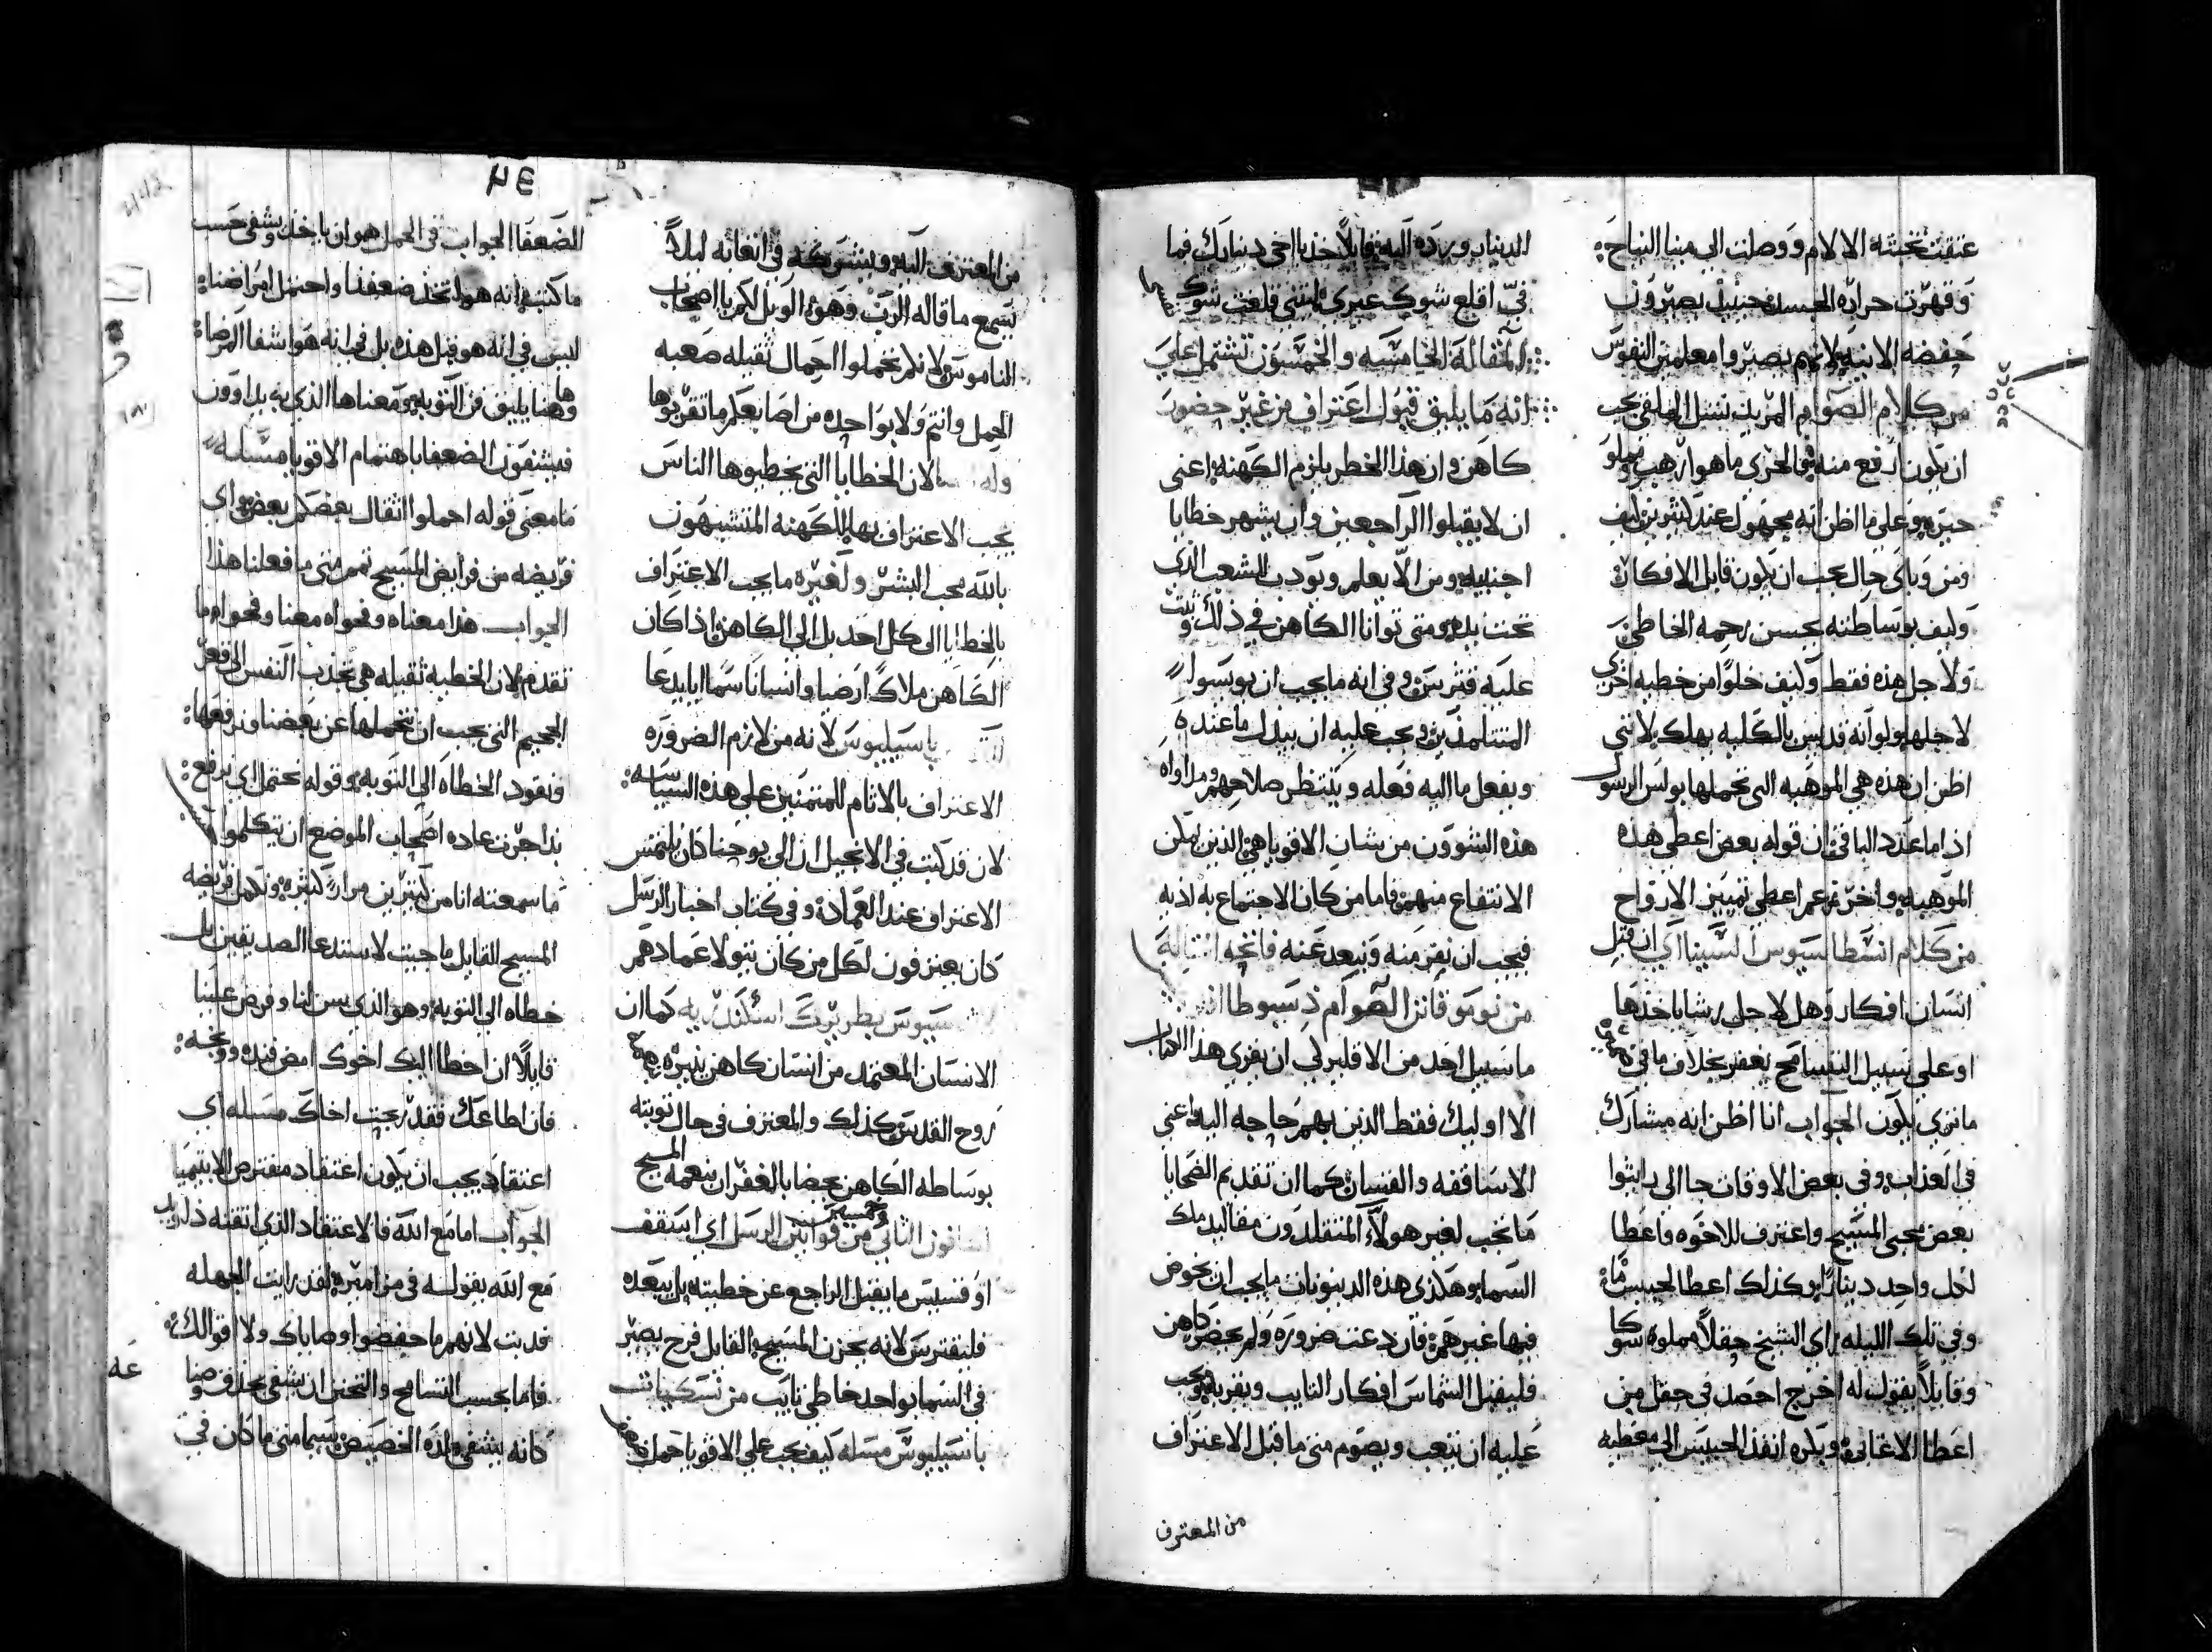 عتقت تحته الالام ووصلت الي مينا النياح
وقهرت حراره الجسد فحينيذ يصيرون
حفضه الانيه لانهم يصيروا معلمين النفوس
من كلام الصوام
ان يكون ارفع منه في الحري ما هو ارهب
خبره وعلي ما اظن انه مجهول عند كثيرين كيف
ومن وباى حال يجب ان يكون قابل الافكار
وكيف بوساطته يحسن رحمه الخاطي
ولاجل هذه فقط وكيف خلوا من خطيه اخري
لاجلها ولو انه قديس بالكليه يهلك لانني
اظن ان هذه هي الموهبه التى تحملها بولس الرسول
اذ اما عدد الباقي ان قوله بعض اعطى هذه
الموهبه واخر زعم اعطي تمييز الارواح
من كلام انسطاسيوس السينا اي ان قبل
انسان افكار وهل لاجل رشا ياخذها
او علي سبيل التسامح يغفر بخلاف ما في
ما تري يكون الجواب انا اظن انه مشارك
في العذاب وفى بعض الاوقات جا الى رايثوا
بعض محبى المسيح واعترف للاخوه واعطا
لكل واحد دينارا وكذلك اعطا لحبيس
وفي تلك الليله راي الشيخ حقلا مملوه شوكا
وقايلا يقول له اخرج احصد في حقل من
اعطا الاغابي وبكره انفذ الحبيس الى معطيه
الدينار ورده اليه قايلا خذ يا اخي دينارك فما
فيّ اقلع شوك غيري ليتني قلعت شوكي
المقاله الخامسه والخمسون تشتمل علي
انه ما يليق قبول اعتراف من غير حضور
كاهن وان هذا الخطر يلزم الكهنه اعني
ان لا يقبلوا الراجعين وان يشهر خطايا
اجنبيه ومن الا يعلم ويودب الشعب الذي
تحت يده ومتى توانا الكاهن في ذلك وثبت
عليه فتترس وفي انه ما يجب ان يوسوا
المتتلمذين ويجب عليه ان يبذل ما عنده
ويفعل ما اليه فعله وينتظر صلاحهم ومداواه
هذه الشوون من شان الاقويا هي الذين يمكن
الانتفاع منهم فاما من كان الاجتماع به اذيه
فيجب ان نفر منه ونبعد عنه
من نومو قانن الصوام
ما سبيل احد من الاقلير لي ان يقري هذا الكتاب
الا اوليك فقط الذين بهم حاجه اليه اعني
الاساقفه والقسان كما ان تقديم الضحايا
ما تجب لغير هولا المتقلدون مقاليد ملك
السما وهكذي هذه الدينونات ما يجب ان يخوض
فيها غيرهم فان دعت ضروره ولم يحضر كاهن
فليقبل الشماس افكار التايب ويقربه ويجب
عليه ان يتعب ويصوم متى ما قبل الاعتراف
من المعترف
من المعترف اليه ويشوركه في اتعابه ليلا
يسمع ما قاله الرب وهو الويل لكم يا اصحاب
الناموس لانكم تحملوا احمال ثقيله صعبه
الحمل وانتم ولا بواحده من اصابعكم ما تقربوها
وله لان الخطايا التي يخطيوها الناس
يجب الاعتراف بها للكهنه المتشبهون
بالله محب البشر ولغيره ما يجب الاعتراف
بالخطايا الى كل احد بل الي الكاهن اذا كان
الكاهن ملاك ارضيا وانسانا سمايا يدعا
باسيليوس لانه من لازم الضروره
الاعتراف بالاثام للمتمنين على هذه السياسه
لان قد كتب في الانجيل ان الى يوحنا كان يلتمس
الاعتراف عند العماده وفي كتاب اخبار الرسل
كان يعترفون لكل من كان يتولا عمادهم
بطريرك اسكندريه كما ان
الانسان المعتمد من انسان كاهن ينيره
روح القدس كذلك والمعترف في حال توبته
بوساطه الكاهن يحضا بالغفران بنعمه المسيح
القانون الثاني وخمسين من قوانين الرسل اي اسقف
او قسيس ما يقبل الراجع عن خطيته بل يبعده
فلنفترس لانه يحزن المسيح القايل فرح يصير
في السما بواحد خاطي تايب من نسكيات
باسيليوس مسله كيف يجب علي الاقويا حمل
٧٤
الضعفا الجواب في الحمل هو ان ياخذ ويشفى حسب
ما كتب انه هو اتخذ ضعفنا واحتمل امراضنا
ليس في انه هو قبل هذه بل في انه هو اشفا المرضاه
وهاهنا يليق فن التوبه ومعناها الذي به يداوون
فيشفون الضعفا باهتمام الاقويا مسله
ما معنى قوله احملوا اثقال بعضكم بعض واي
فريضه من فرايض المسيح نتمم متى ما فعلنا هذا
الجواب هذا معناه وفحواه معنا وفحواه ما
تقدم لان الخطيه ثقيله هي تجذب النفس الى قعر
الجحيم التي يجب ان نتحملها عن بعضنا ونرفعها
ونقود الخطاه الي التوبه وقوله نحتمل اي نرفع
بذا جرت عاده اصحاب الموضع ان يتكلموا
ما سمعته انا من كثيرين مرارا كثيره ونكمل فريضه
المسيح القايل ما جيت لاستدعا الصديقين بل
خطاه الى التوبه وهو الذي سن لنا وفرض علينا
قايلا ان اخطا اليك اخوك امض فنده ووبخه
فان اطاعك فقد ربحت اخاك مسله اي
اعتقاد يجب ان يكون اعتقاد مفترض الابتيميا
الجواب اما مع الله فالاعتقاد الذي اتقنه ذلك
مع الله بقوله في مزاميره لقد رايت الجهله
فدبت لانهم ما حفضوا وصاياك ولا اقوالك
فاما بحسب التسامح والتحنن ان يشفى بحذف وصنا
كانه يشفي ولده الخصيص سيما متى ما كان في
عه